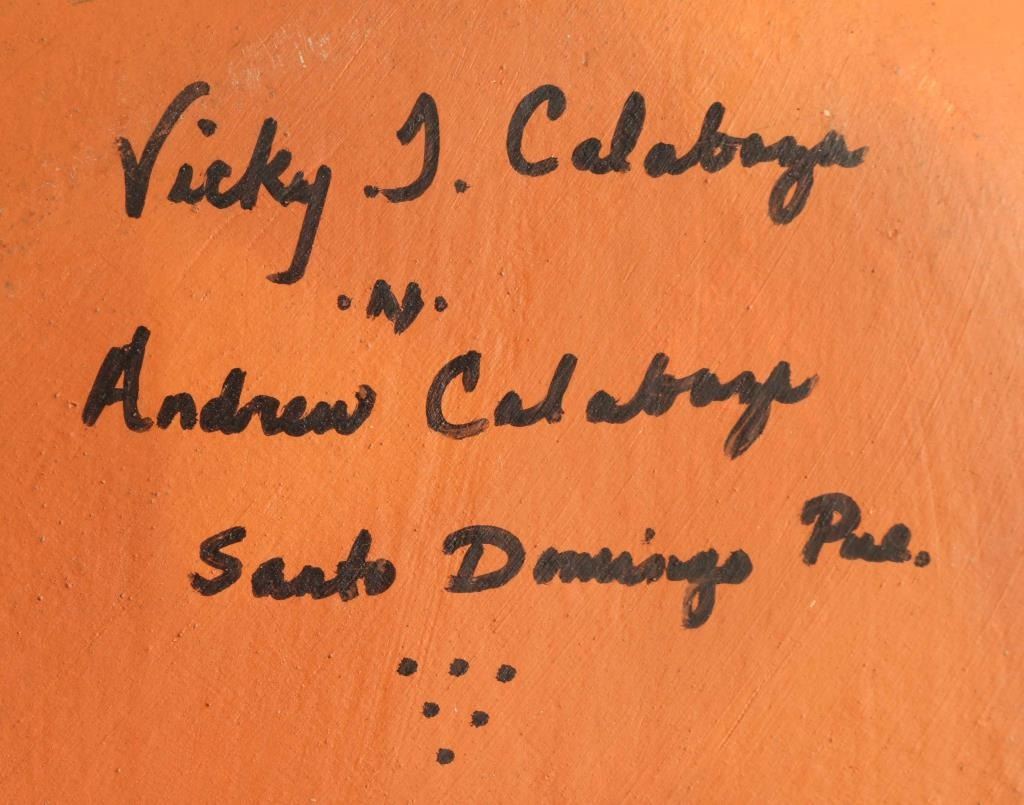 Vicky T. Calabaza
Andrew Calabaza
Santo Domingo Pue.